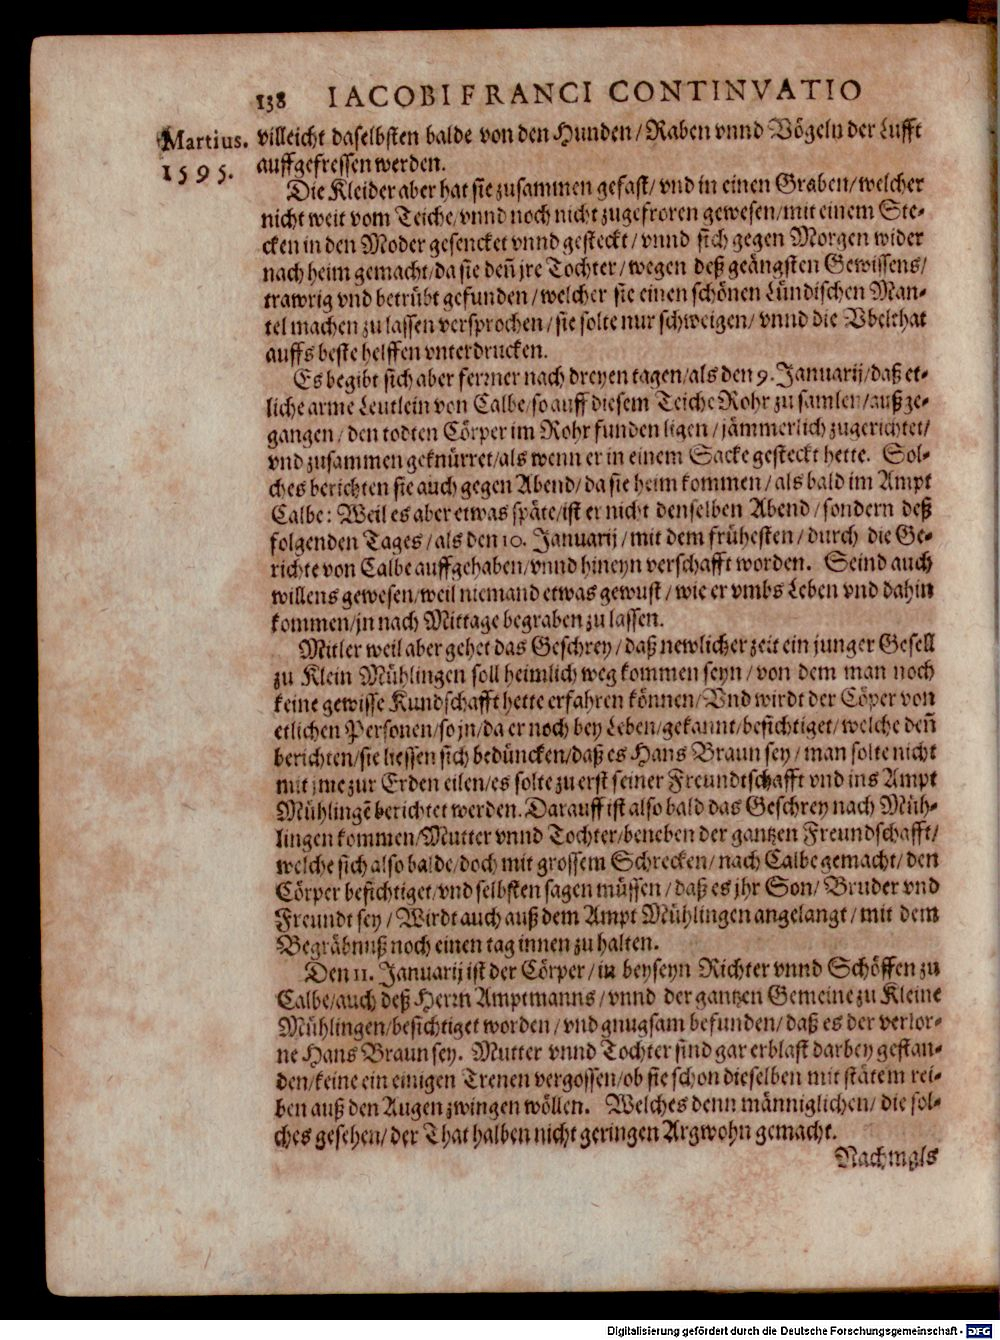 138 IACOBI FRANCI CONTINVATIO
Martius.
1595.
villeicht daselbsten balde von den Hunden / Raben vnnd Vögeln der Lufft
auffgefressen werden.
Die Kleider aber hat sie zusammen gefast / vnd in einen Graben / welcher
nicht weit vom Teiche / vnnd noch nicht zugefroren gewesen / mit einem Ste-
cken in den Moder gesencket vnnd gesteckt / vnnd sich gegen Morgen wider
nach heim gemacht / da sie deñ jre Tochter / wegen deß geängsten Gewissens /
trawrig vnd betrübt gefunden / welcher sie einen schönen Lündischen Man-
tel machen zu lassen versprochen / sie solte nur schweigen / vnnd die Vbelthat
auffs beste helffen vnterdrucken.
Es begibt sich aber ferrner nach dreyen tagen / als den 9. Januarij / daß et-
liche arme Leutlein von Calbe / so auff diesem Teiche Rohr zu samlen / außge-
gangen / den todten Cörper im Rohr funden ligen / jämmerlich zugerichtet /
vnd zusammen geknürret / als wenn er in einem Sacke gesteckt hette. Sol-
ches berichten sie auch gegen Abend / da sie heim kommen / als bald im Ampt
Calbe: Weil es aber etwas späte / ist er nicht denselben Abend / sondern deß
folgenden Tages / als den 10. Januarij / mit dem frühesten / durch die Ge-
richte von Calbe auffgehaben / vnnd hineyn verschafft worden. Seind auch
willens gewesen / weil niemand etwas gewust / wie er vmbs Leben vnd dahin
kommen / jn nach Mittage begraben zu lassen.
Mitler weil aber gehet das Geschrey / daß newlicher zeit ein junger Gesell
zu Klein Mühlingen soll heimlich weg kommen seyn / von dem man noch
keine gewisse Kundschafft hette erfahren können / Vnd wirdt der Cöper von
etlichen Personen / so jn / da er noch bey Leben / gekannt / besichtiget / welche deñ
berichten / sie liessen sich bedüncken / daß es Hans Braun sey / man solte nicht
mit jme zur Erden eilen / es solte zu erst seiner Freundtschafft vnd ins Ampt
Mühlingẽ berichtet werden. Darauff ist also bald das Geschrey nach Müh-
lingen kommen / Mutter vnnd Tochter / beneben der gantzen Freundschafft /
welche sich also balde / doch mit grossem Schrecken / nach Calbe gemacht / den
Cörper besichtiget / vnd selbsten sagen müssen / daß es jhr Son / Bruder vnd
Freundt sey / Wirdt auch auß dem Ampt Mühlingen angelangt / mit dem
Begräbnuß noch einen tag innen zu halten.
Den 11. Januarij ist der Cörper / in beyseyn Richter vnnd Schöffen zu
Calbe / auch deß Herrn Amptmanns / vnnd der gantzen Gemeine zu Kleine
Mühlingen / besichtiget worden / vnd gnugsam befunden / daß es der verlor-
ne Hans Braun sey. Mutter vnnd Tochter sind gar erblast darbey gestan-
den / keine ein einigen Trenen vergossen / ob sie schon dieselben mit stätem rei-
ben auß den Augen zwingen wöllen. Welches denn männiglichen / die sol-
ches gesehen / der That halben nicht geringen Argwohn gemacht.
Nachmals
Digitalisierung gefördert durch die Deutsche Forschungsgemeinschaft - DFG